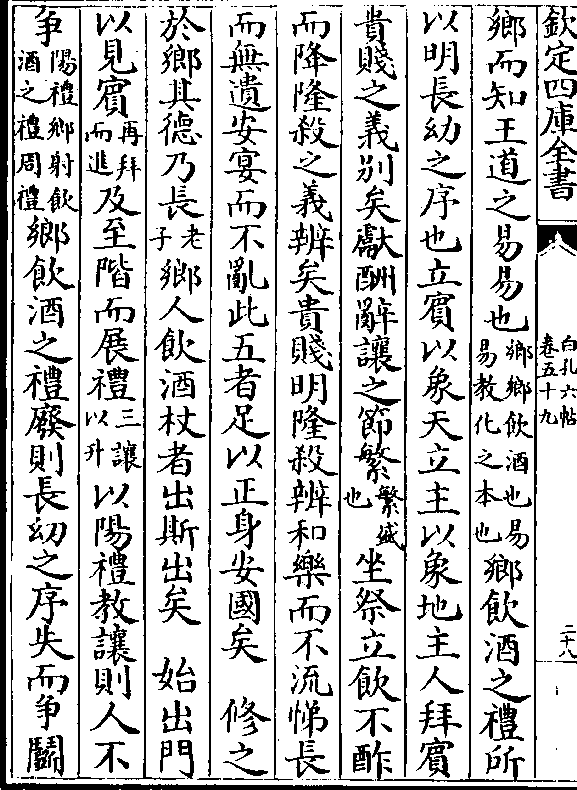 欽定四庫全書
白孔六帖
卷五十九
二十八
鄉而知王道之易易也鄉鄉飲酒也易易教化之本也鄉飲酒之禮所
以明長幼之序也立賓以象天立主以象地主人拜賓
貴賤之義別矣獻酬辭讓之節繁繁盛也坐祭立飲不酢
而降隆殺之義辨矣貴賤明隆殺辨和樂而不流悌長
而無遺安宴而不亂此五者足以正身安國矣　修之
於鄉其德乃長老子鄉人飲酒杖者出斯出矣　始出門
以見賓再拜而進及至階而展禮三讓以升以陽禮教讓則人不
爭陽禮鄉射飲酒之禮周禮鄉飲酒之禮廢則長幼之序失而爭鬭